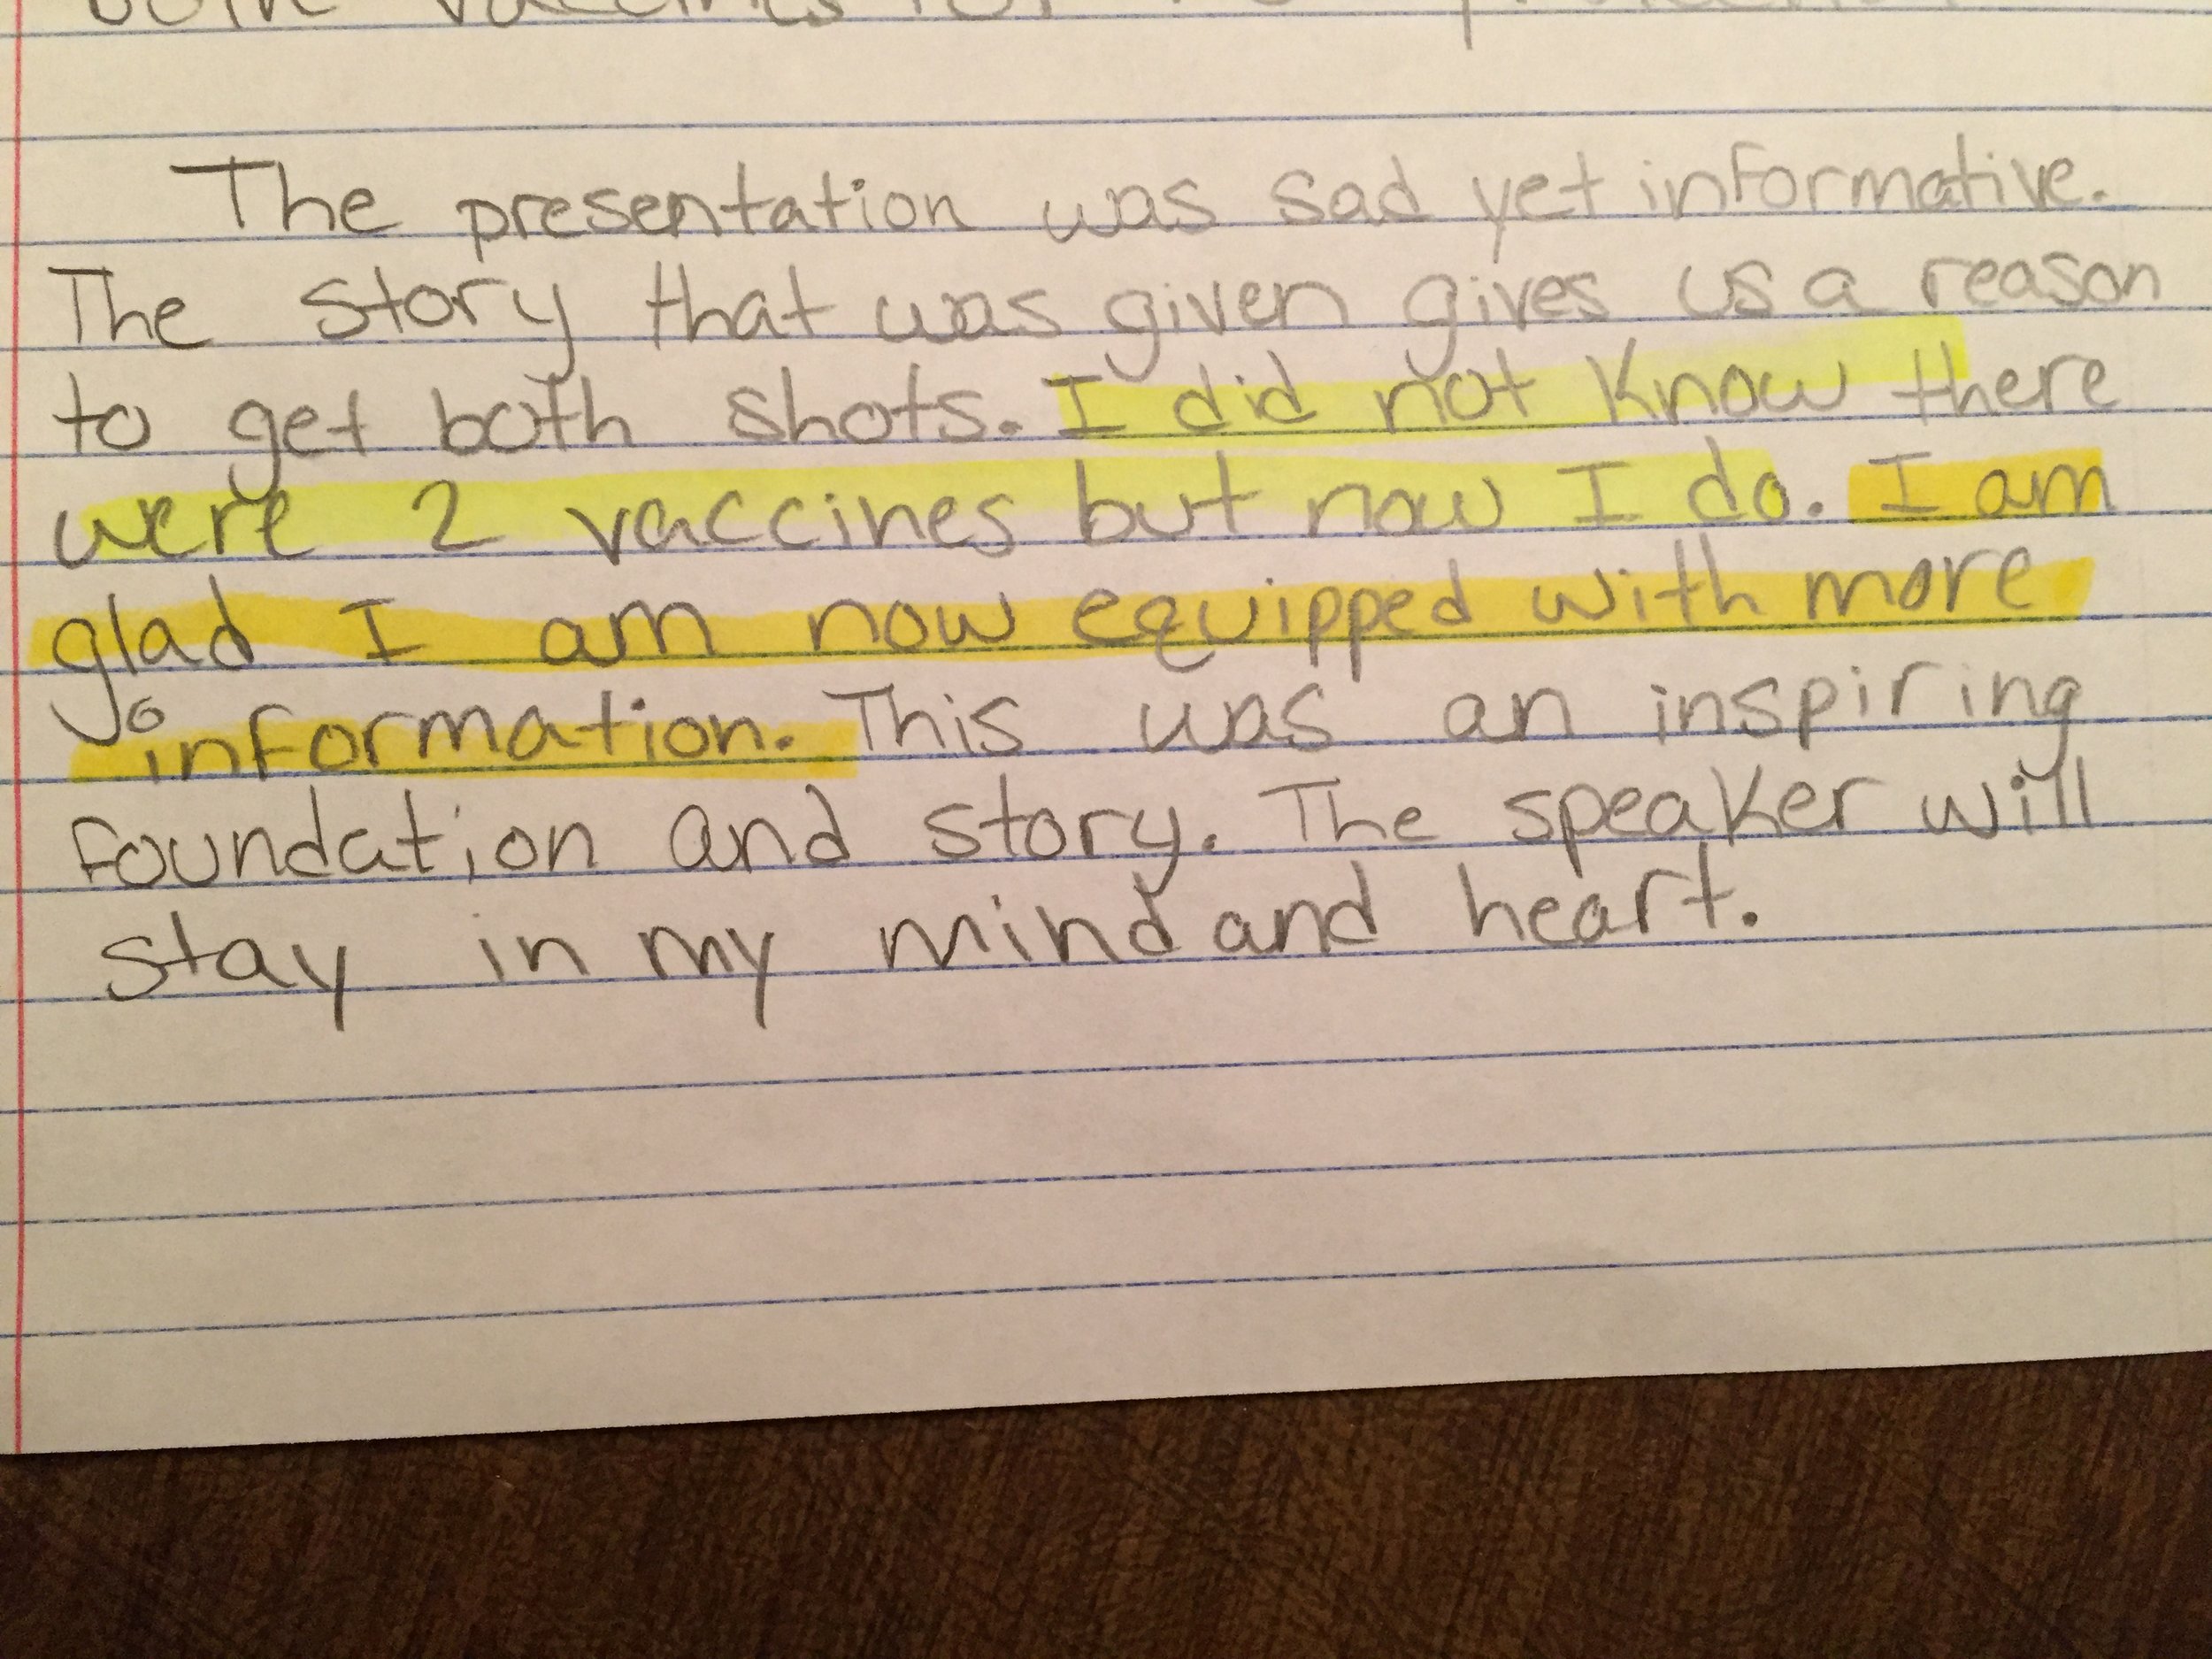 both vaccines for
The presentation was sad yet informative.
The story that was given gives us a reason
to get both shots. I did not know there
were 2 vaccines but now I do. I am
glad I am now equipped with more
information. This was an inspiring
foundation and story. The speaker will
stay in my mind and heart.